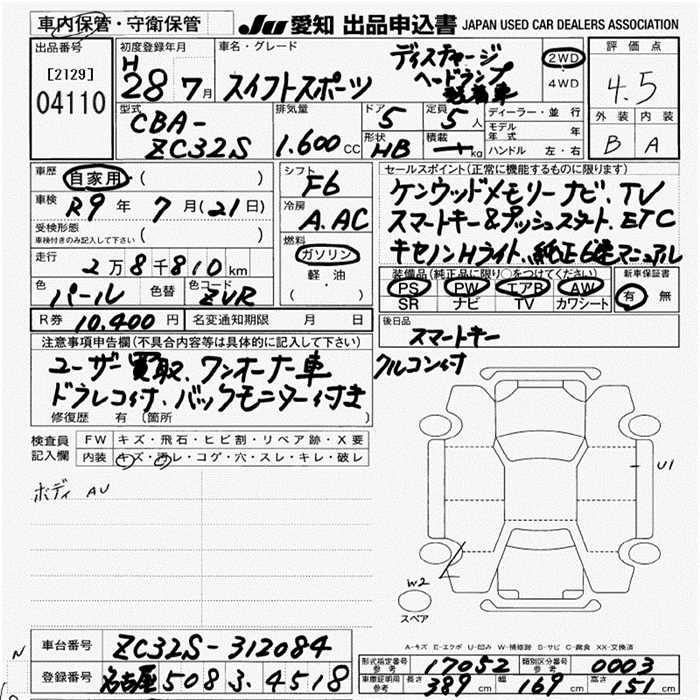 車内保管・守衛保管
JU 愛知 出品申込書 JAPAN USED CAR DEALERS ASSOCIATION
出品番号
[2129]
04110
初度登録年月
H
28 7月
車名・グレード
スイフトスポーツ
ディスチャージ
ヘッドランプ
装着車
2WD
・
4WD
評価点
4.5
外装 内装
B A
型式
CBA-
ZC32S
排気量
1.600cc
ドア
5
定員
5人
形状
HB
積載
kg
ディーラー・並行
モデル
年式 年
ハンドル 左・右
車歴
自家用・( )
車検
R9年 7月(21日)
受検形態
車検付きのみ記入して下さい ( )
走行
2万8千810km
色
パール
色替
色コード
ZVR
シフト
F6
冷房
A.AC
燃料
ガソリン
軽油
( ・ )
セールスポイント(正常に機能するものに限ります)
ケンウッドメモリーナビ、TV
スマートキー&プッシュスタート、ETC
キセノンHライト、純正6速マニュアル
装備品(純正品に限り○をつけてください)
PS PW エアB AW
SR ナビ TV カワシート
新車保証書
有・無
R券 10,400円 名変通知期限 月 日
後日品
スマートキー
注意事項申告欄(不具合内容等は具体的に記入して下さい)
ユーザー買取、ワンオーナー車 クルコン付
ドラレコ付、バックモニター付き
修復歴 有 (箇所 )
検査員
記入欄
FW キズ・飛石・ヒビ割・リペア跡・X要
内装 キズ・汚レ・コゲ・穴・スレ・キレ・破レ
ボディ AU
U1
W2
スペア
A-キズ E-エクボ U-凹み W-補修跡 S-サビ C-腐食 XX-交換済
車台番号 ZC32S-312084
登録番号 名古屋 508 す 4518
N
形式指定番号
参考 17052
類別区分番号
参考 0003
車庫証明用
参考 長さ 389cm 幅 169cm 高さ 151cm